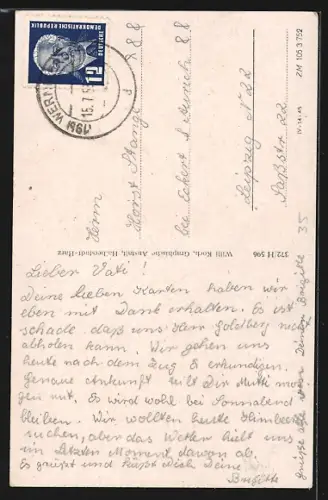 DEUTSCHE
DEMOKRATISCHE REPUBLIK
12
(19b) WERNI
15.7.5
d
Herrn
Horst Stange
bei Eckert
Leipzig N 22
Saßstr. 22
ZM 105 3 752
IV-14-45
372 H 596
Willi Koch, Graphische Anstalt, Halberstadt-Harz
35
Lieber Vati!
Deine lieben Karten haben wir
eben mit Dank erhalten. Es ist
schade daß uns Herr Goldberg nicht
abholen kann. Wir gehen uns
heute nach dem Zug z. erkundigen.
Genaue Ankunft teilt Dir Mutti mor-
gen mit. Es wird wohl bei Sonnabend
bleiben. Wir wollten heute Himbeeren
suchen, aber das Wetter hielt uns
im letzten Moment davon ab.
Es grüßt und küßt Dich Deine
Brigitte
Grüße alle von Deiner Brigitte